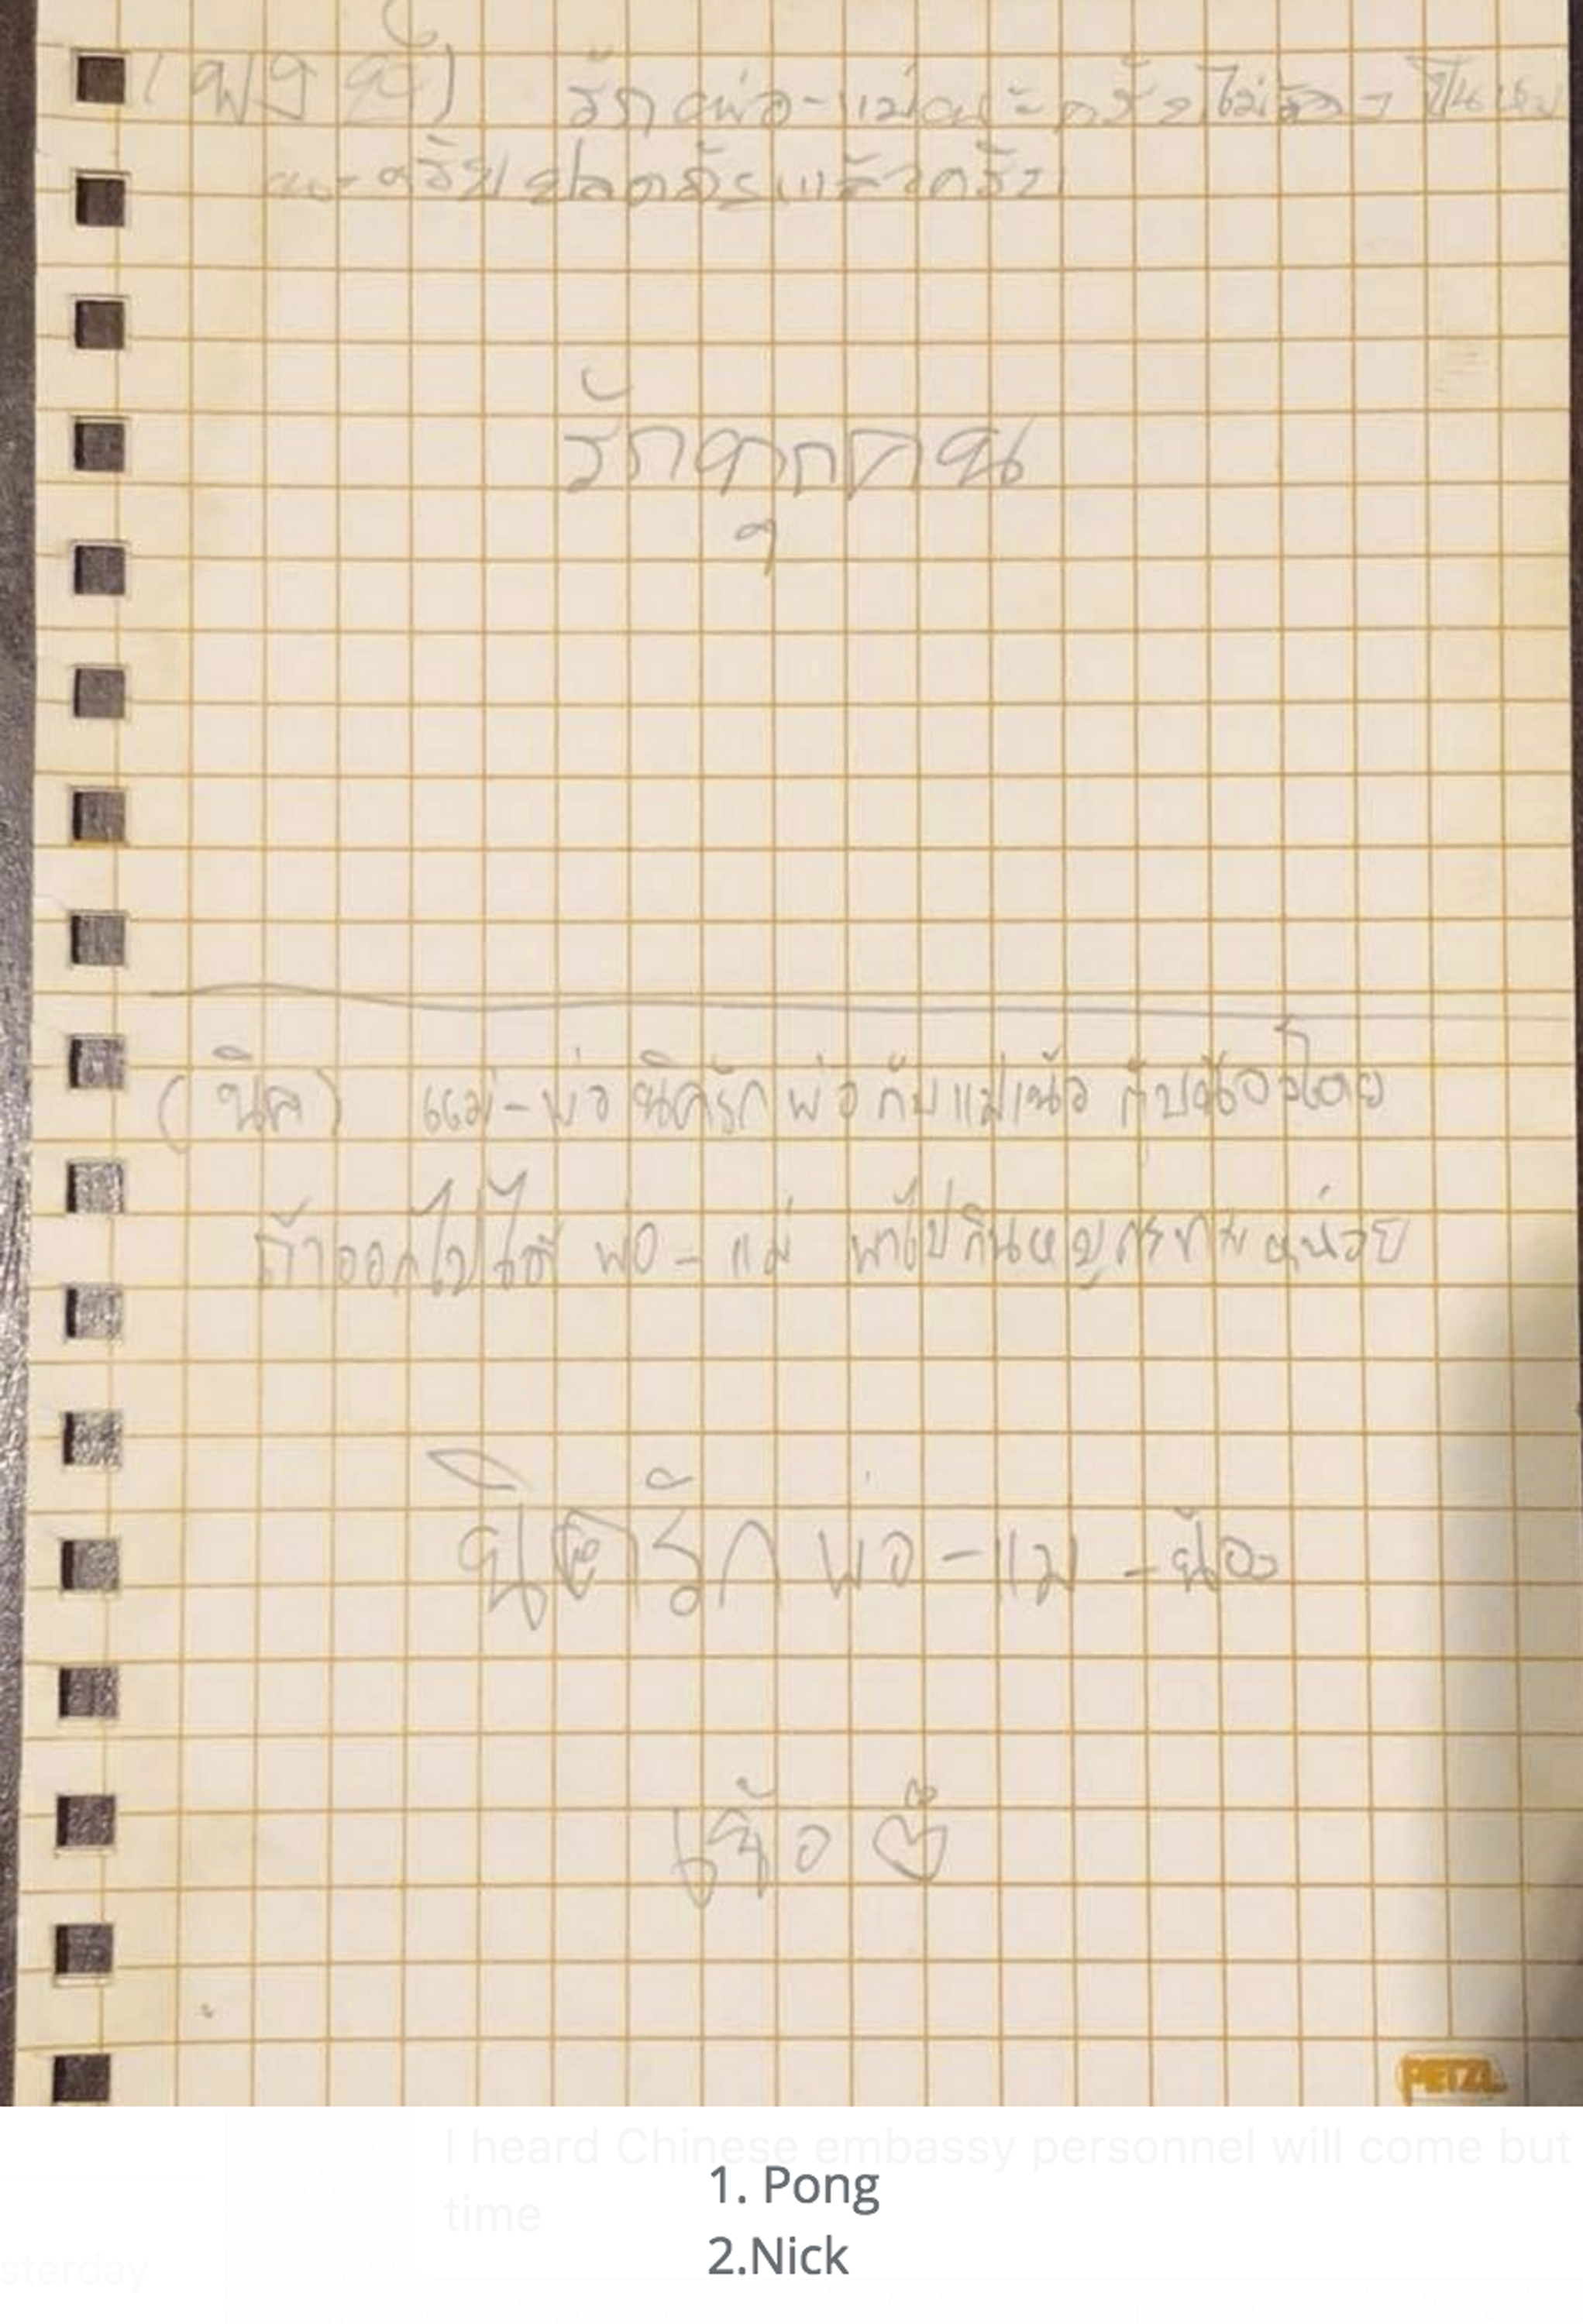 รักพ่อ-แม่นะครับไม่ต้อง เป็นห่วง
นะครับปลอดภัยแล้วครับ
รักทุกคน
(นิค) แม่-พ่อ นิครัก พ่อ กับ แม่เน้อ กับน้องโดย
ถ้าออกไปได้ พ่อ-แม่ พาไปกินหมูกระทะหน่อย
นิครัก พ่อ-แม-น้อง
เน้อ
PETZL
I heard Chinese embassy personnel will come but
1. Pong
time
2.Nick
sterday